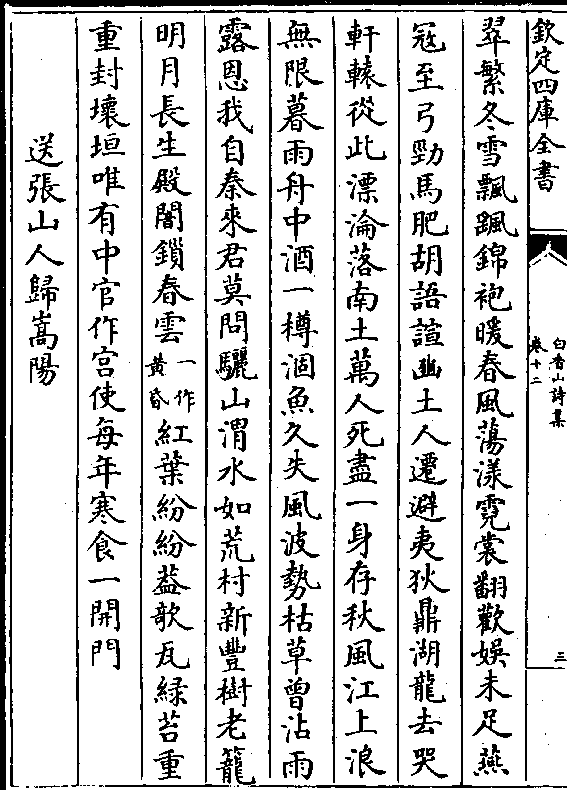 欽定四庫全書
白香山詩集
卷十二
三
翠繁冬雪飄颻錦袍暖春風蕩漾霓裳翻歡娛未足燕
寇至弓勁馬肥胡語諠豳土人遷避夷狄鼎湖龍去哭
軒轅從此漂淪落南土萬人死盡一身存秋風江上浪
無限暮雨舟中酒一樽涸魚久失風波勢枯草曾沾雨
露恩我自秦來君莫問驪山渭水如荒村新豐樹老籠
明月長生殿闇鎖春雲一作黄昏紅葉紛紛葢歌瓦綠苔重
重封壊垣唯有中官作宫使每年寒食一開門
送張山人歸嵩陽